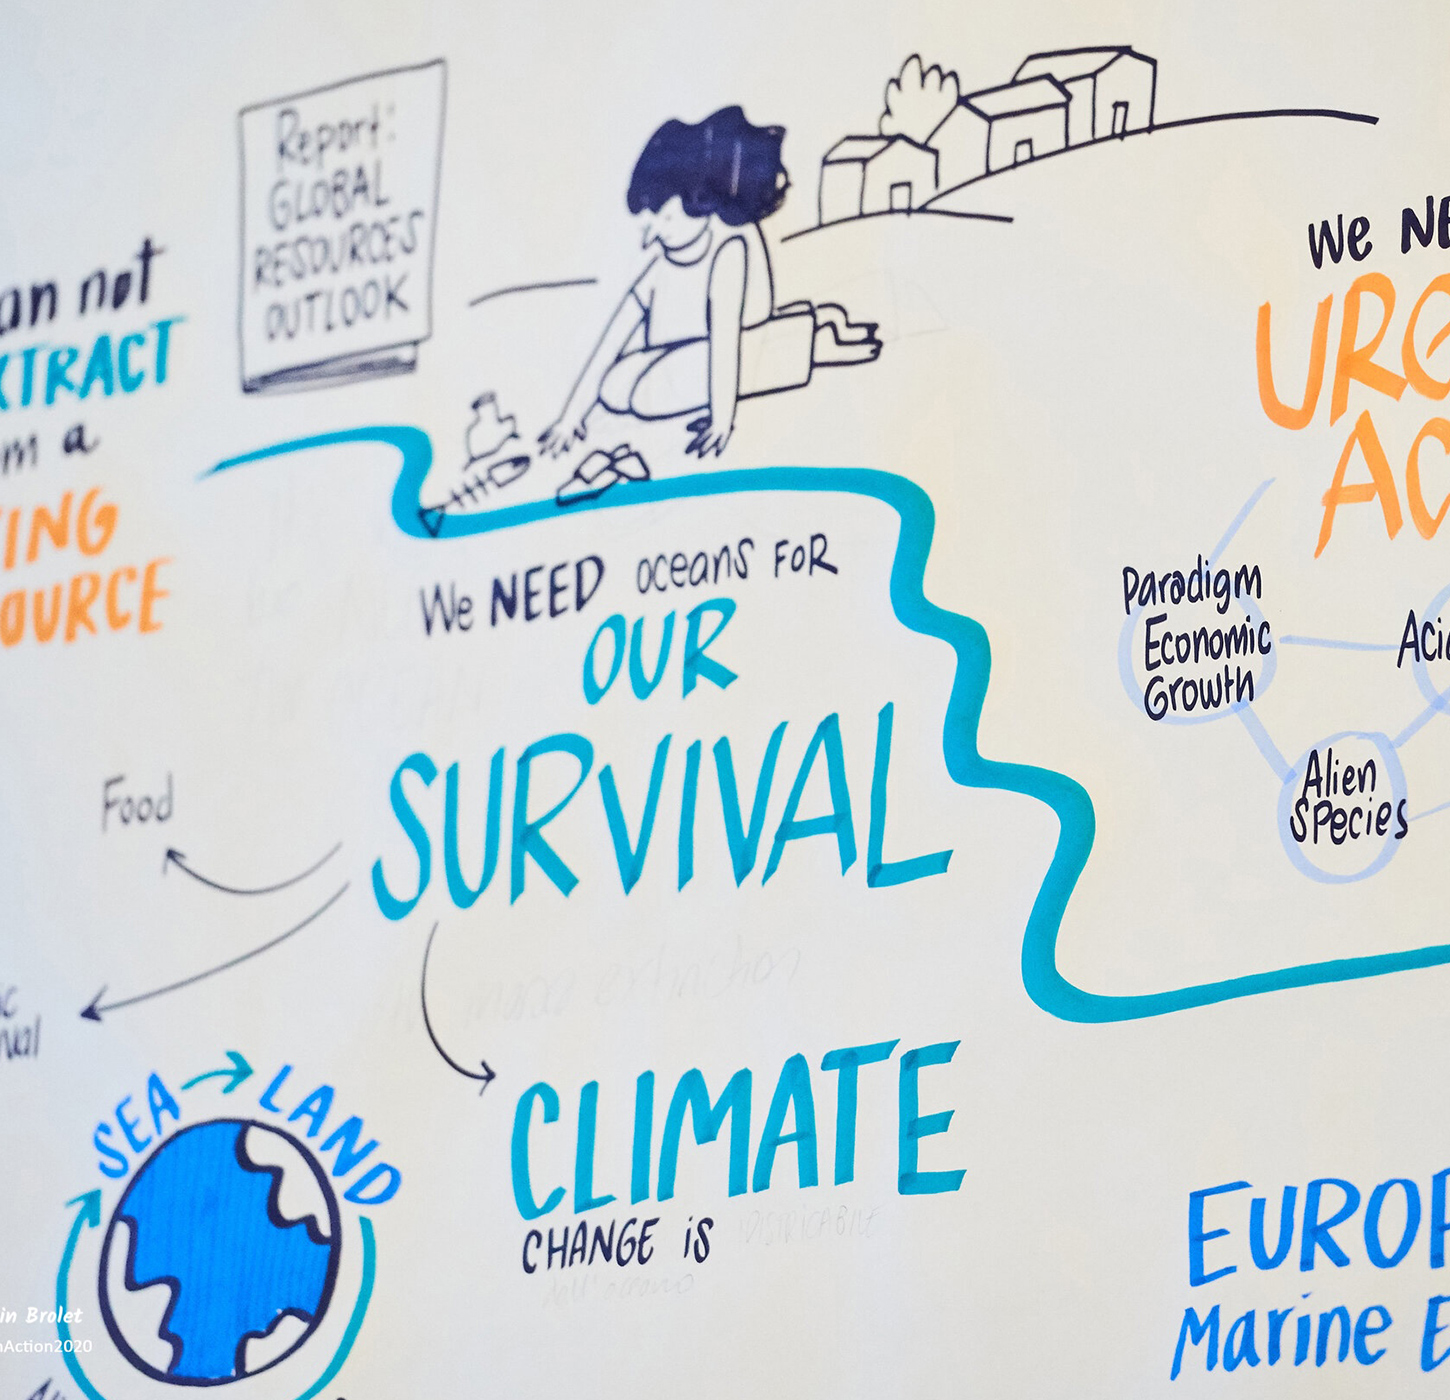 Report:
GLOBAL
RESOURCES
OUTLOOK
an not
XTRACT
m a
ING
OURCE
We NEED oceans FOR
OUR
SURVIVAL
Food
CLIMATE
CHANGE iS
SEA → LAND
We NE
URG
AC
Paradigm
Economic
Growth
Acid
Alien
Species
EUROP
Marine E
in Brolet
nAction2020